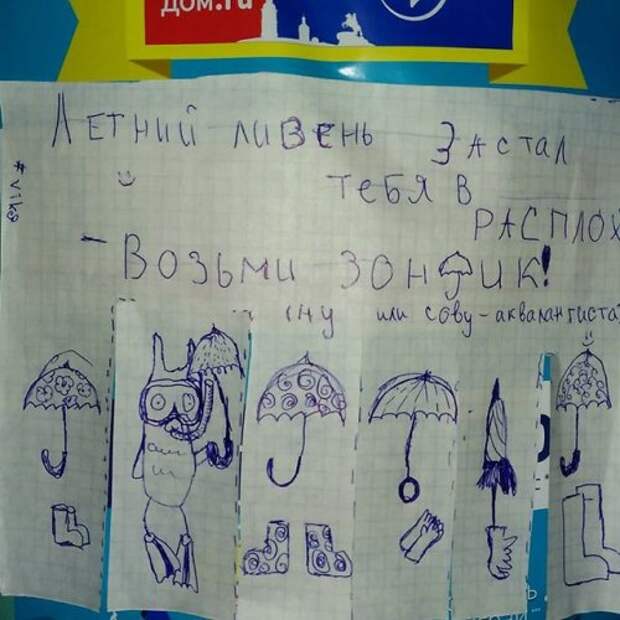 ДОМ.ru
ЛЕТНИЙ ЛИВЕНЬ ЗАСТАЛ
ТЕБЯ В
РАСПЛОХ
- ВОЗЬМИ ЗОНТИК!
или сову-аквалангиста
#vika